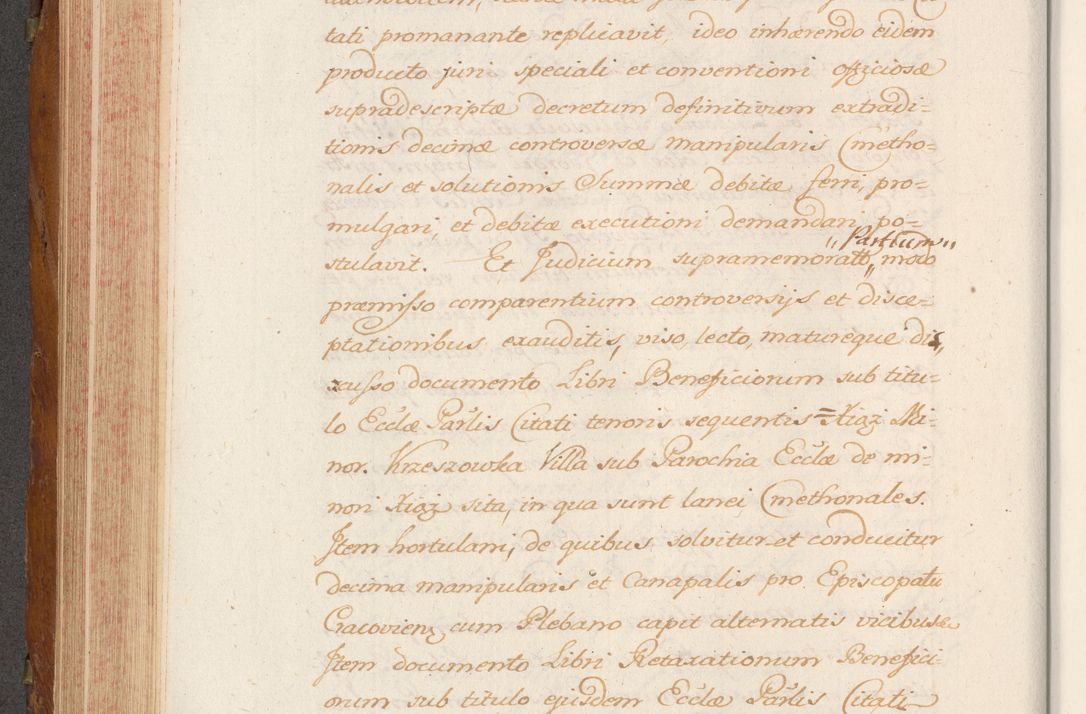 tati promanante replicavit, ideo inhærendo eidem
producto juri speciali et conventioni officiosæ
supradescriptæ decretum definitivum extradi-
tionis decimæ controversæ manipularis Cmetho-
nalis et solutionis Summæ debitæ ferri, pro-
mulgari, et debitæ executioni demandari po-
stulavit. Et Judicium supramemoratt, "Partium" modo
præmisso comparentium controversijs et disce-
ptationibus exauditis, viso, lecto, matureque dis,
scusso documento Libri Beneficiorum sub titu-
lo Ecclæ Parlis Citati tenoris sequentis = Xiąz Mi-
nor. Krzeszowka Villa sub Parochia Ecclæ de mi-
nori Xiąz sita, in qua sunt lanei Cmethonales.
Item hortulani, de quibus solvitur et conducitur
decima manipularis et Canapalis pro Episcopatu
Cracovien, cum Plebano capit alternatis vicibus &
Item documento Libri Retaxationum Benefici-
orum sub titulo ejusdem Ecclæ Parlis Citati